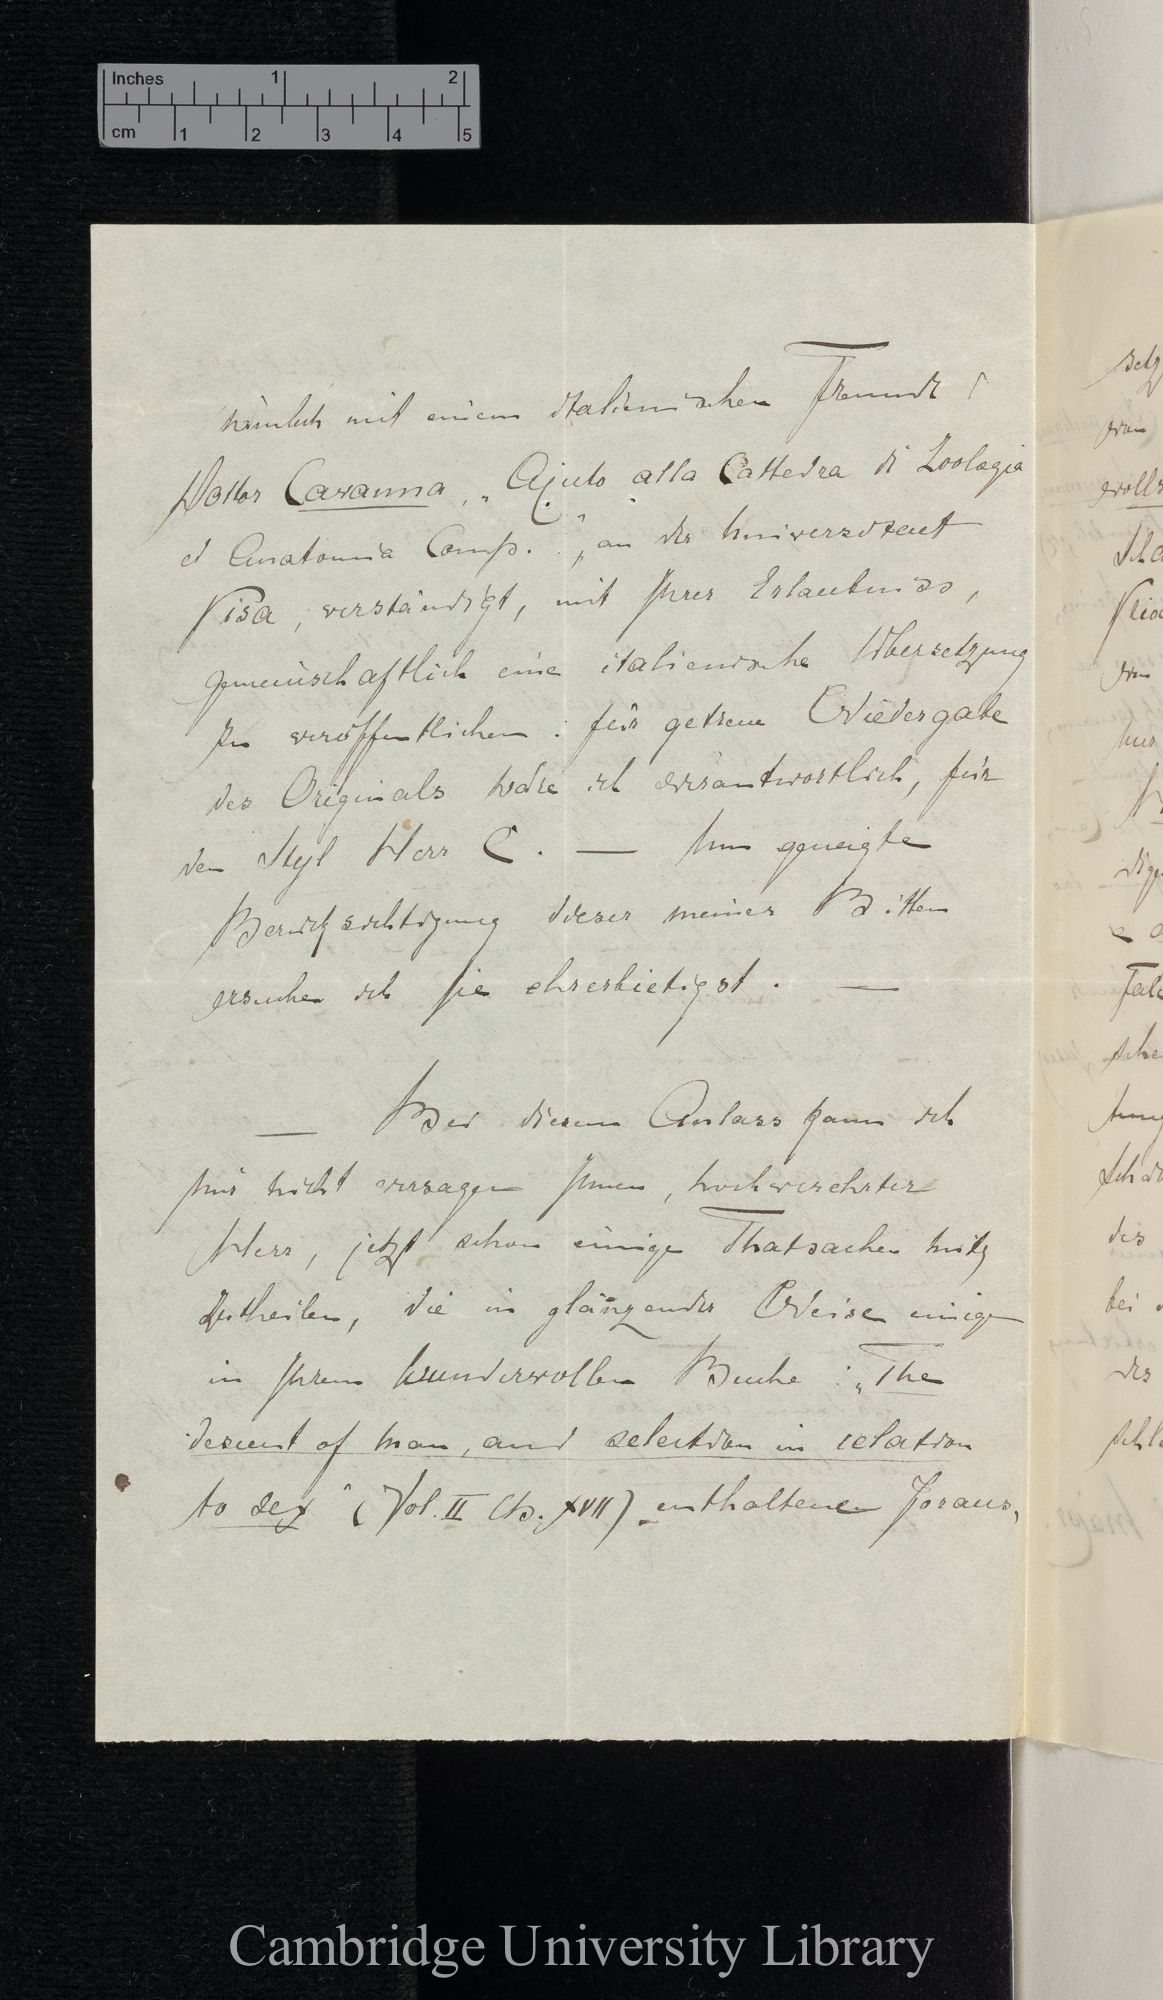 Inches 1 2
cm 1 2 3 4 5
nämlich mit einem italienischen Freunde,
Dottor Cavanna, „Ajuto alla Cattedra di Zoologia
et Anatomia Comp.“, an der Universitaet
Pisa, verständigt, mit Ihrer Erlaubniss,
gemeinschaftlich eine italienische Übersetzung
zu veröffentlichen: für getreue Wiedergabe
des Originals wäre ich verantwortlich, für
den Styl Herr C. — Um geneigte
Berücksichtigung dieser meiner Bitten
ersuche ich Sie ehrerbietigst. —
— Bei diesem Anlass kann ich
mir nicht versagen Ihnen, hochverehrter
Herr, jetzt schon einige Thatsachen mit
zutheilen, die in glänzender Weise einige
in Ihrem wundervollen Buche: „The
descent of man, and selection in relation
to sex“ (Vol. II Ch. XVII) enthaltenen Voraus,
Cambridge University Library